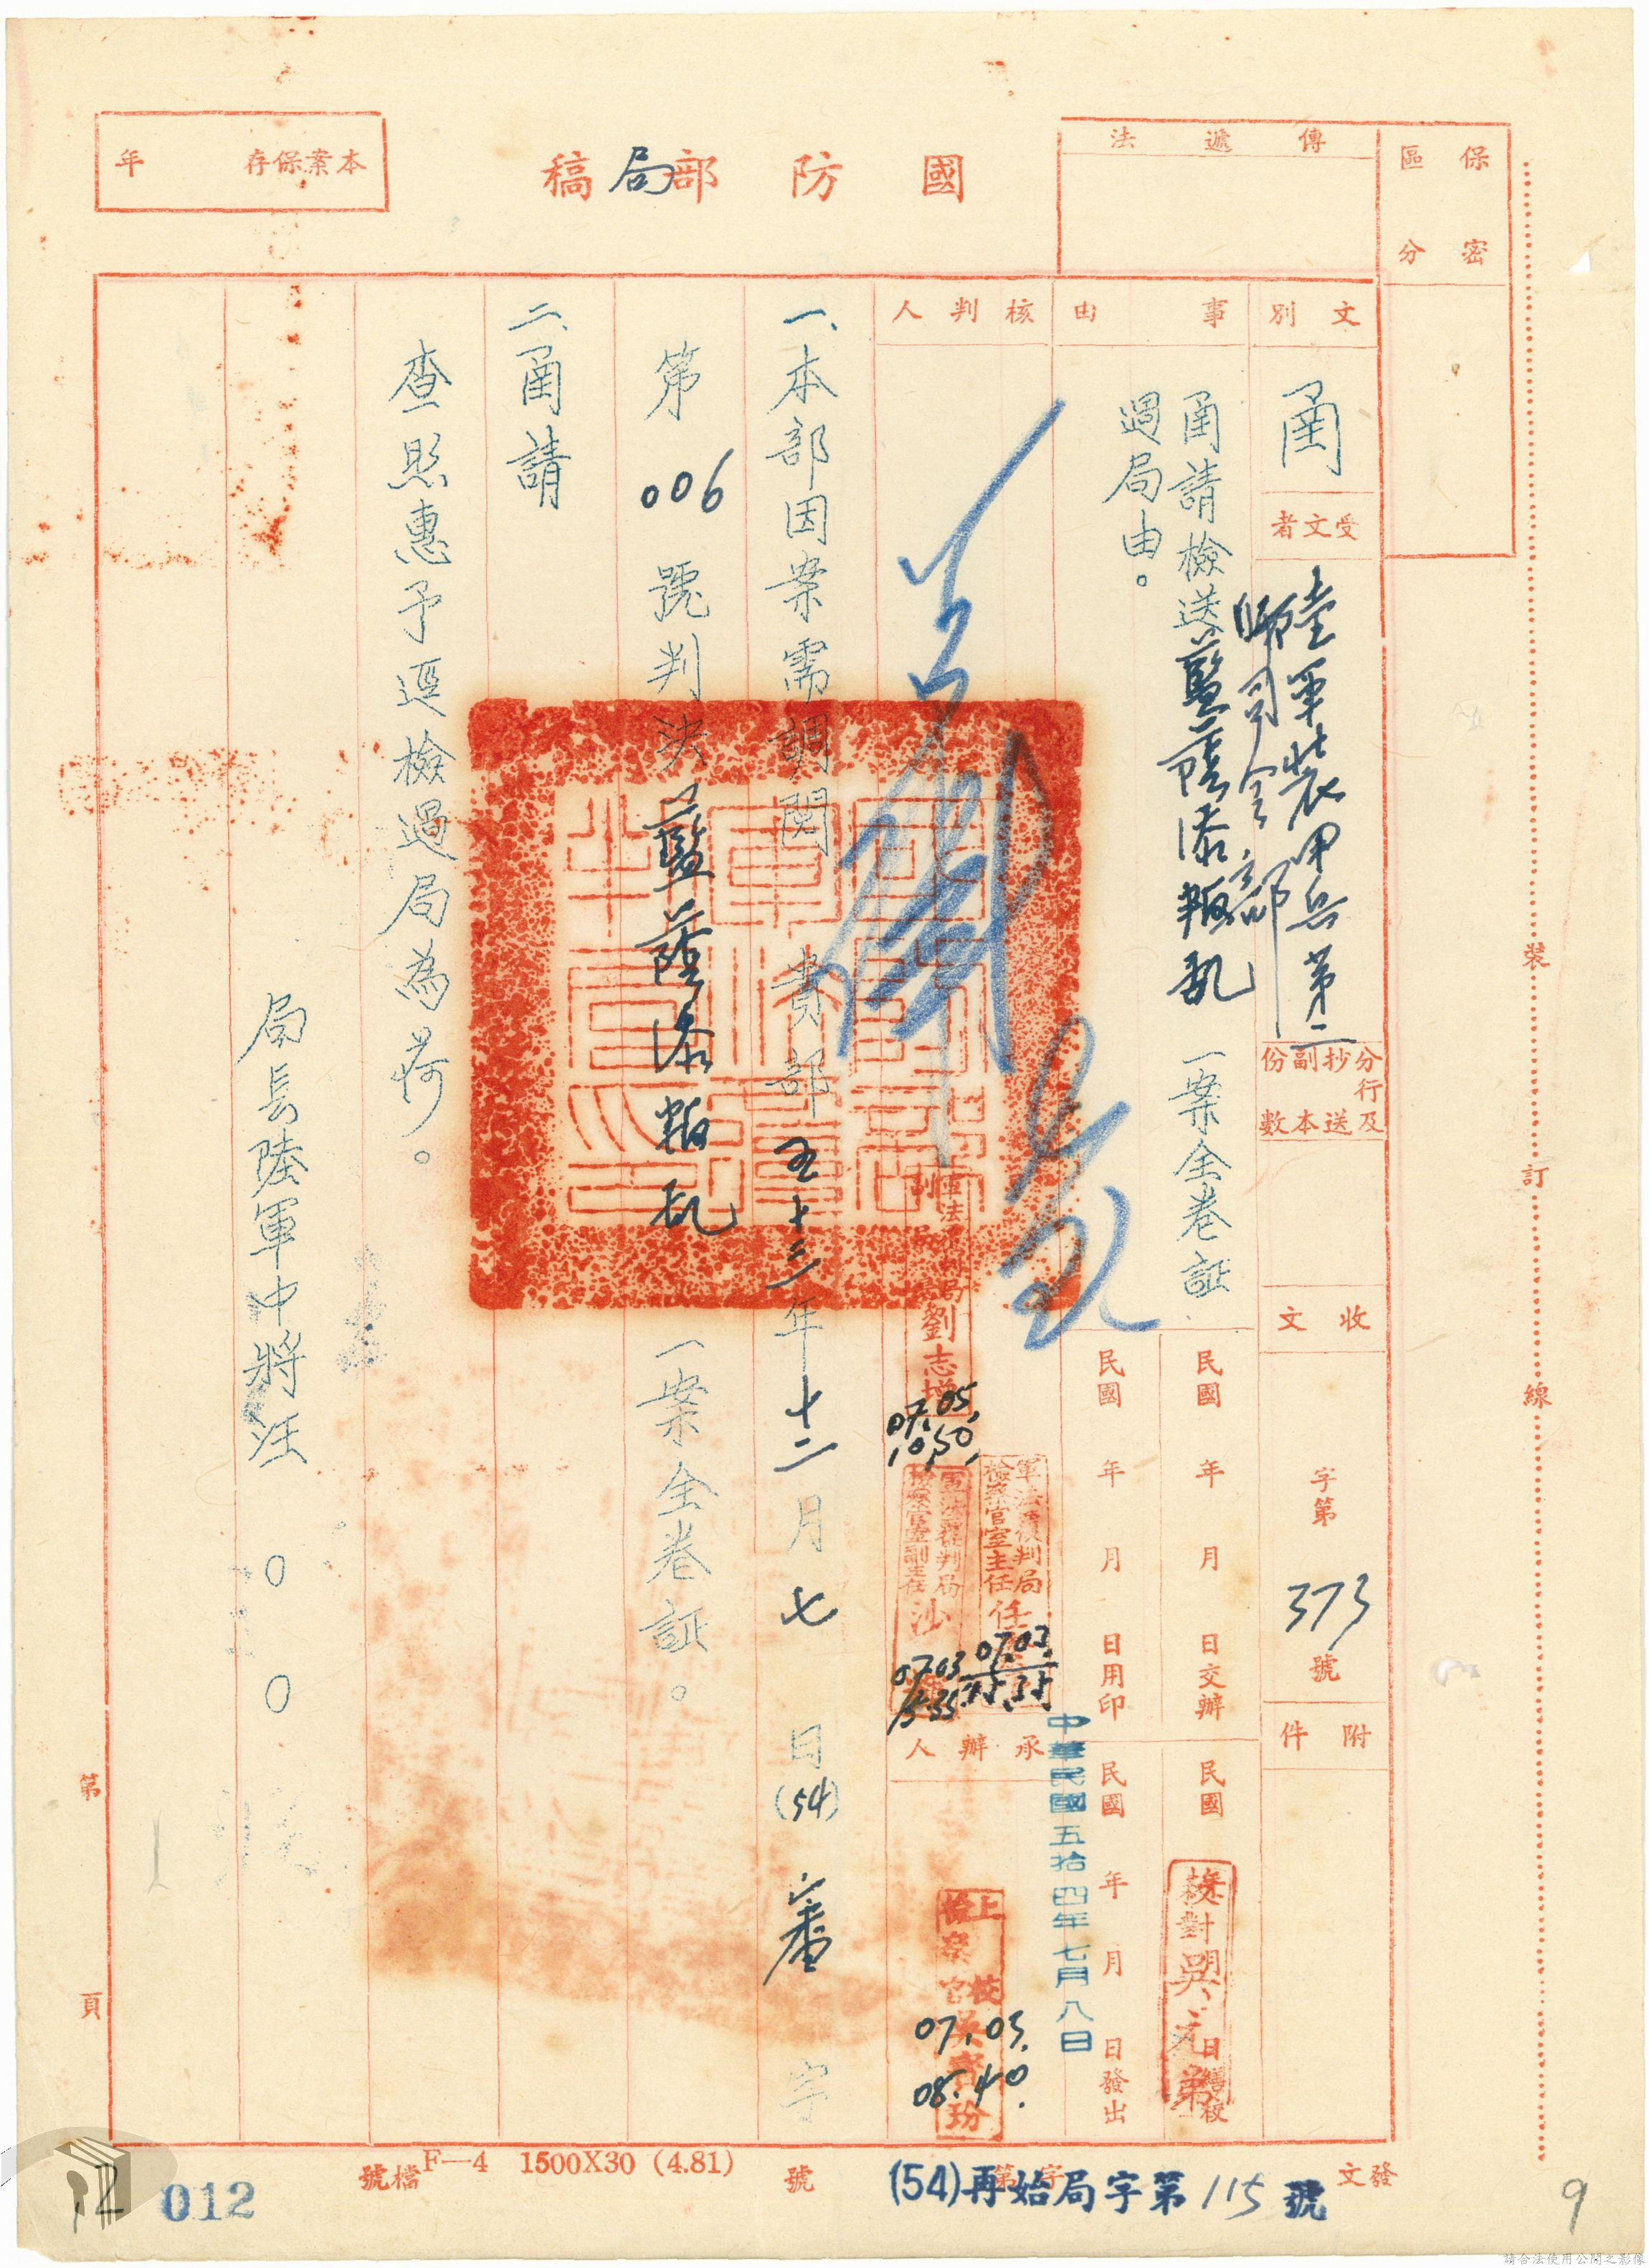 保密
區分
傳遞法
國防部局稿
本案保存 年
文別
函
受文者
陸軍裝甲兵第二
師司令部
分行及
抄送
副本
份數
收文
字第
373
號
附件
事由
函請檢送藍蔭添叛亂一案全卷証
過局由。
民國 年 月 日交辦
民國 年 月 日用印
民國 年 月 日繕校
校對吳
民國 年 月 日發出
中華民國五拾四年七月八日
核判人
劉志增
07.05.
10.50.
軍法覆判局
檢察官室主任
任
07.03.
軍法覆判局
檢察官室副主任
沙
07.03
承辦人
上校
檢察官
07.03.
08.40.
一、本部因案需調閱 貴部五十三年十二月七日(54)審字
第 006 號判決藍蔭添叛亂一案全卷証。
二、函請
查照惠予逕檢過局為荷。
局長陸軍中將汪○○
裝
訂
線
第 頁
發文
字第
(54)再始局字第115號
號
F—4 1500X30 (4.81)
檔號
012
12
9
請合法使用公開之影像